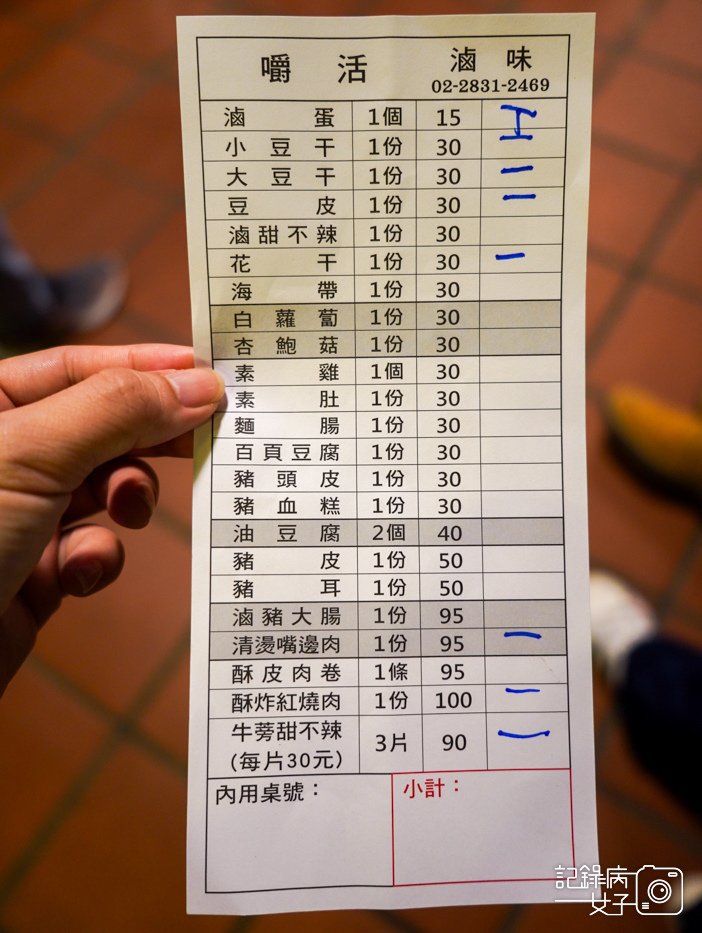 嚼活 滷味
02-2831-2469
滷蛋 1個 15
小豆干 1份 30
大豆干 1份 30 一
豆皮 1份 30 一
滷甜不辣 1份 30
花干 1份 30 一
海帶 1份 30
白蘿蔔 1份 30
杏鮑菇 1份 30
素雞 1個 30
素肚 1份 30
麵腸 1份 30
百頁豆腐 1份 30
豬頭皮 1份 30
豬血糕 1份 30
油豆腐 2個 40
豬皮 1份 50
豬耳 1份 50
滷豬大腸 1份 95
清燙嘴邊肉 1份 95 一
酥皮肉卷 1條 95
酥炸紅燒肉 1份 100 一
牛蒡甜不辣 3片 90 一
(每片30元)
內用桌號： 小計：
記錄病
女子